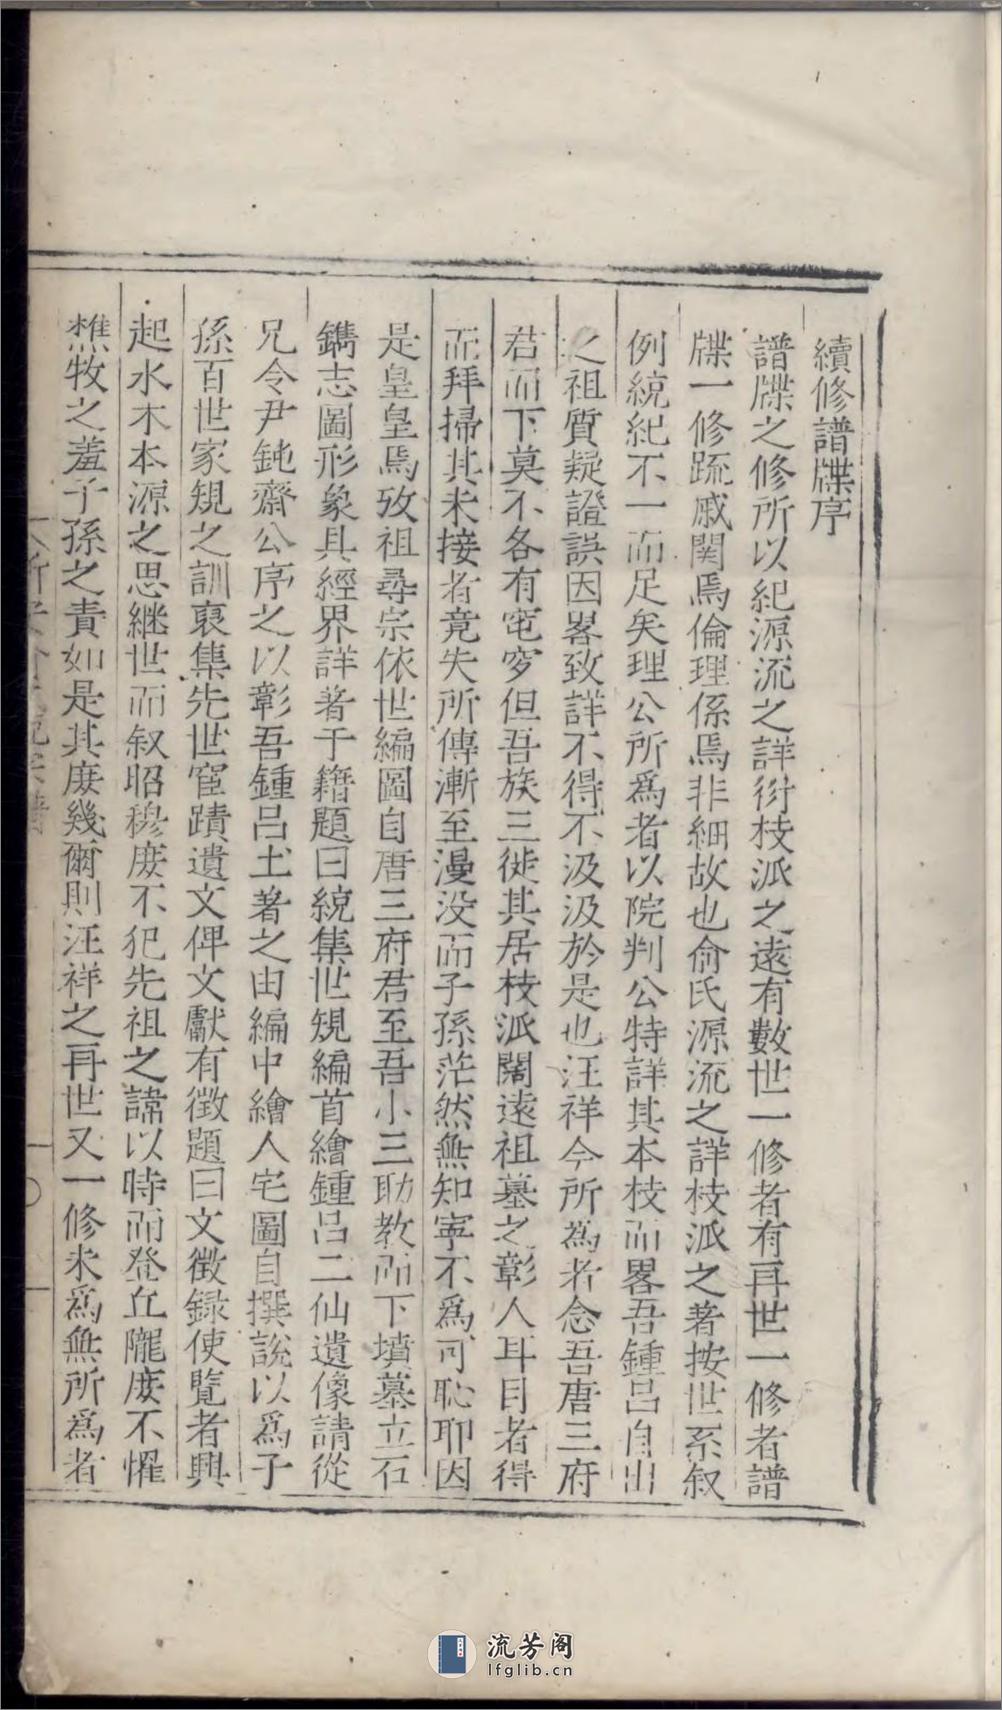 續修譜牒序
譜牒之修所以紀源流之詳衍枝派之遠有數世一修者有再世一修者譜
牒一修䟽戚関焉倫理係焉非細故也俞氏源流之詳枝派之著按世系叙
例統紀不一而足矣理公所爲者以院判公特詳其本枝而畧吾鍾呂自出
之祖質疑證誤因畧致詳不得不汲汲於是也汪祥今所爲者念吾唐三府
君而下莫不各有窀穸但吾族三徙其居枝派闊遠祖墓之彰人耳目者得
而拜掃其未接者竟失所傳漸至漫没而子孫茫然無知寕不爲可恥耶因
是皇皇焉攷祖尋宗依世編圖自唐三府君至吾小三助教而下墳墓立石
鐫志圖形象具經界詳著于籍題曰統集世䂓編首繪鍾呂二仙遺像請從
兄令尹鈍齋公序之以彰吾鍾呂土著之由編中繪人宅圖自撰說以爲子
孫百世家䂓之訓裒集先世宦蹟遺文俾文獻有徵題曰文徵録使覽者興
起水木本源之思継世而叙昭穆庻不犯先祖之諱以時而登丘隴庻不懼
樵牧之羞子孫之責如是其庻幾爾則汪祥之再世又一修未爲無所爲者
流芳阁
lfglib.cn